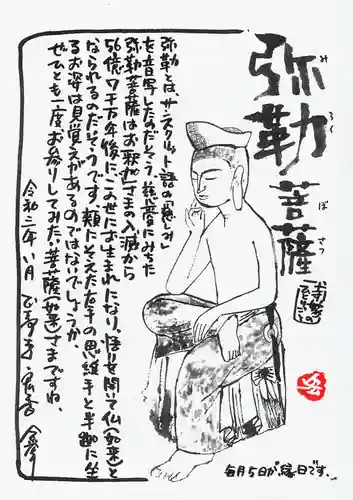 弥勒
みろく
菩薩
ぼさつ
弥勒とは、サンスクリット語の「慈しみ」
を音写したものだそう。慈愛にみちた
弥勒菩薩はお釈迦さまの入滅から
56億7千万年後に、この世に生まれになり、悟りを開いて仏(如来)と
なられるのだそうです。頬にそえた右手の思惟手と半跏に坐
るお姿は見覚えがあるのではないでしょうか。
ぜひとも一度お参りしてみたい菩薩(如来)さまですね。
令和三年
毎月5日が縁日です。